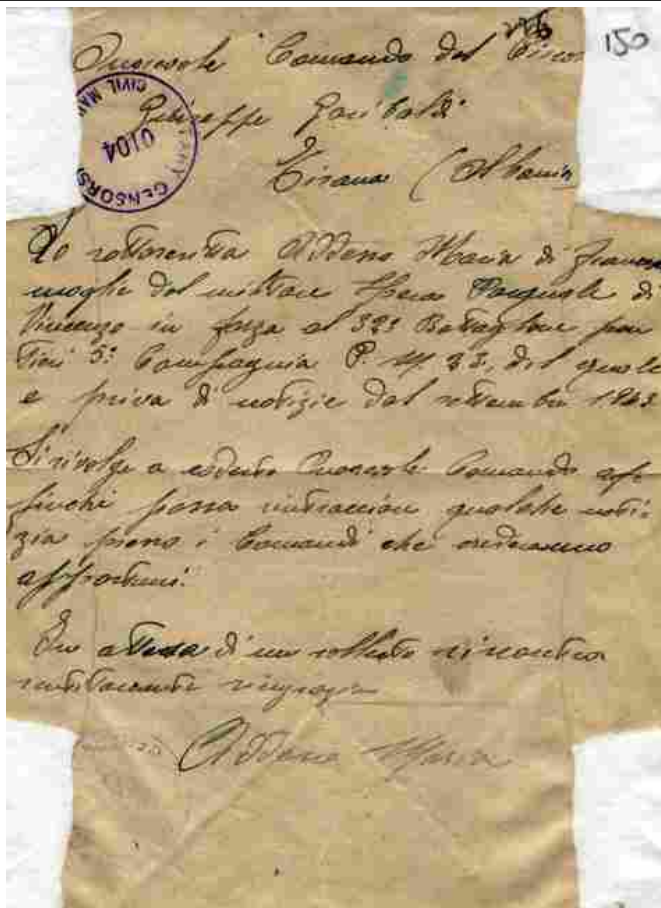 226
150
Onorevole Comando del
Giuseppe Garibaldi
CIVIL MA
0104
CENSORS
Tirana (Albania
sottoscritta Addeno Maria di
moglie del militare Pasquale di
Vincenzo in forza al 32° Battaglione
5° Compagnia P. M. 23, del quale
e priva di notizie dal settembre 1943
Si rivolge a codesto Onorevole Comando
finchè possa rintracciare qualche noti-
zia presso i Comandi che crederanno
opportuni.
In attesa di un sollecito riscontro
sentitamente ringrazia
Addeno Maria